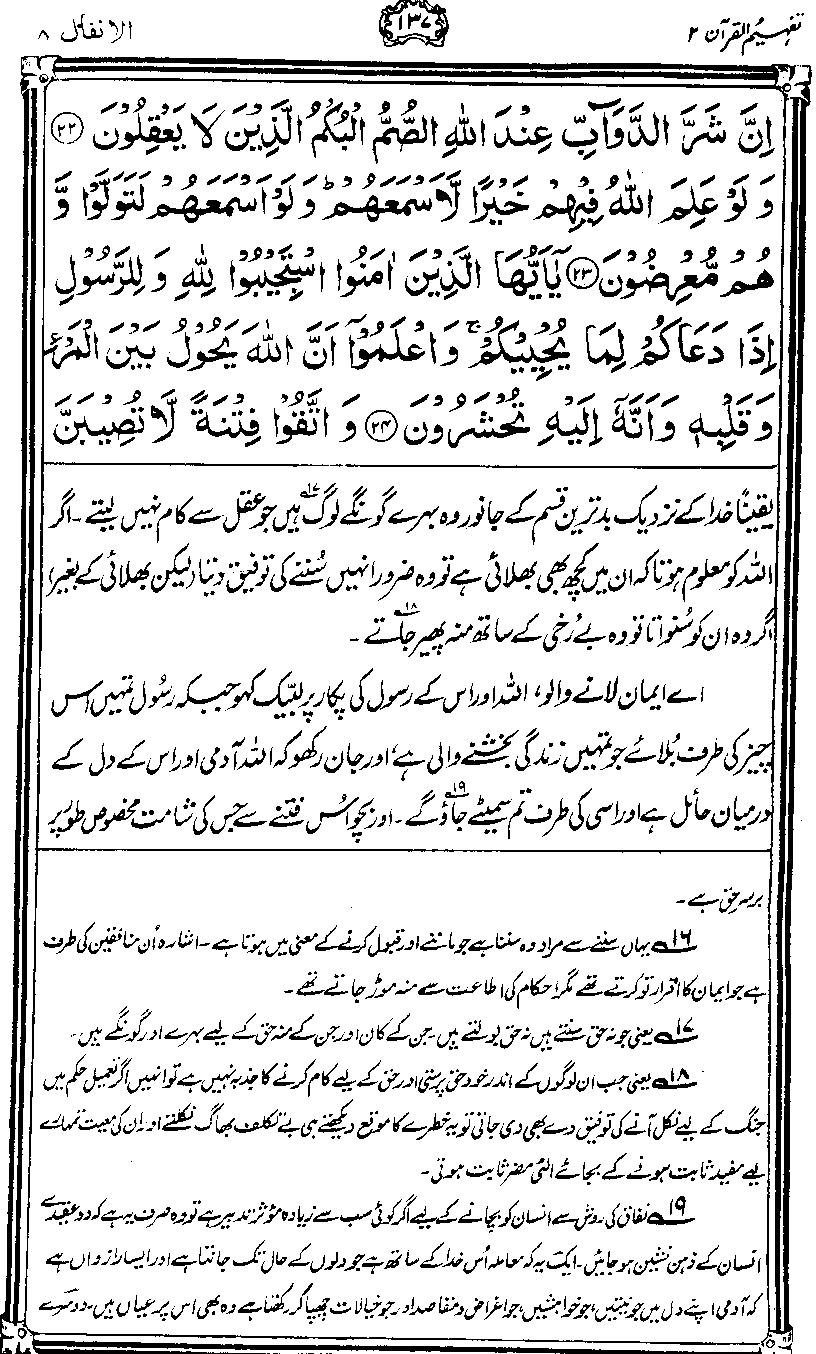 تفہیم القرآن ۲
۱۳۷
الانفال ۸
اِنَّ شَرَّ الدَّوَآبِّ عِنْدَ اللّٰهِ الصُّمُّ الْبُكْمُ الَّذِيْنَ لَا يَعْقِلُوْنَ ﴿۲۲﴾
وَ لَوْ عَلِمَ اللّٰهُ فِيْهِمْ خَيْرًا لَّاَسْمَعَهُمْ ؕ وَ لَوْ اَسْمَعَهُمْ لَتَوَلَّوْا وَّ
هُمْ مُّعْرِضُوْنَ ﴿۲۳﴾ يٰۤاَيُّهَا الَّذِيْنَ اٰمَنُوا اسْتَجِيْبُوْا لِلّٰهِ وَ لِلرَّسُوْلِ
اِذَا دَعَاكُمْ لِمَا يُحْيِيْكُمْ ۚ وَ اعْلَمُوْۤا اَنَّ اللّٰهَ يَحُوْلُ بَيْنَ الْمَرْءِ
وَ قَلْبِهٖ وَ اَنَّهٗۤ اِلَيْهِ تُحْشَرُوْنَ ﴿۲۴﴾ وَ اتَّقُوْا فِتْنَةً لَّا تُصِيْبَنَّ
یقیناً خدا کے نزدیک بدترین قسم کے جانور وہ بہرے گونگے لوگ۱۷ ہیں جو عقل سے کام نہیں لیتے۔ اگر
اللہ کو معلوم ہوتا کہ ان میں کچھ بھی بھلائی ہے تو وہ ضرور انہیں سُننے کی توفیق دیتا (لیکن بھلائی کے بغیر)
اگر وہ ان کو سُنواتا تو وہ بے رُخی کے ساتھ منہ پھیر جاتے۱۸۔
اے ایمان لانے والو، اللہ اور اس کے رسول کی پکار پر لبّیک کہو جبکہ رسُول تمہیں اُس
چیز کی طرف بُلائے جو تمہیں زندگی بخشنے والی ہے، اور جان رکھو کہ اللہ آدمی اور اس کے دل کے
درمیان حائل ہے اور اسی کی طرف تم سمیٹے جاؤ گے۱۹۔ اور بچو اُس فتنے سے جس کی شامت مخصوص طور پر
برسرِ حق ہے۔
۱۶ یہاں سننے سے مراد وہ سننا ہے جو ماننے اور قبول کرنے کے معنی میں ہوتا ہے۔ اشارہ اُن منافقین کی طرف
ہے جو ایمان کا اقرار تو کرتے تھے مگر احکام کی اطاعت سے منہ موڑ جاتے تھے۔
۱۷ یعنی جو نہ حق سنتے ہیں نہ حق بولتے ہیں۔ جن کے کان اور جن کے منہ حق کے لیے بہرے اور گونگے ہیں۔
۱۸ یعنی جب ان لوگوں کے اندر خود حق پرستی اور حق کے لیے کام کرنے کا جذبہ نہیں ہے تو انہیں اگر تعمیل حکم میں
جنگ کے لیے نکل آنے کی توفیق دے بھی دی جاتی تو یہ خطرے کا موقع دیکھتے ہی بے تکلف بھاگ نکلتے اور ان کی معیت تمہارے
لیے مفید ثابت ہونے کے بجائے الٹی مضر ثابت ہوتی۔
۱۹ نفاق کی روش سے انسان کو بچانے کے لیے اگر کوئی سب سے زیادہ مؤثر تدبیر ہے تو وہ صرف یہ ہے کہ دو عقیدے
انسان کے ذہن نشین ہو جائیں۔ ایک یہ کہ معاملہ اُس خدا کے ساتھ ہے جو دلوں کے حال تک جانتا ہے اور ایسا راز داں ہے
کہ آدمی اپنے دل میں جو نیتیں، جو خواہشیں، جو اغراض و مقاصد اور جو خیالات چھپا کر رکھتا ہے وہ بھی اس پر عیاں ہیں۔ دوسرے